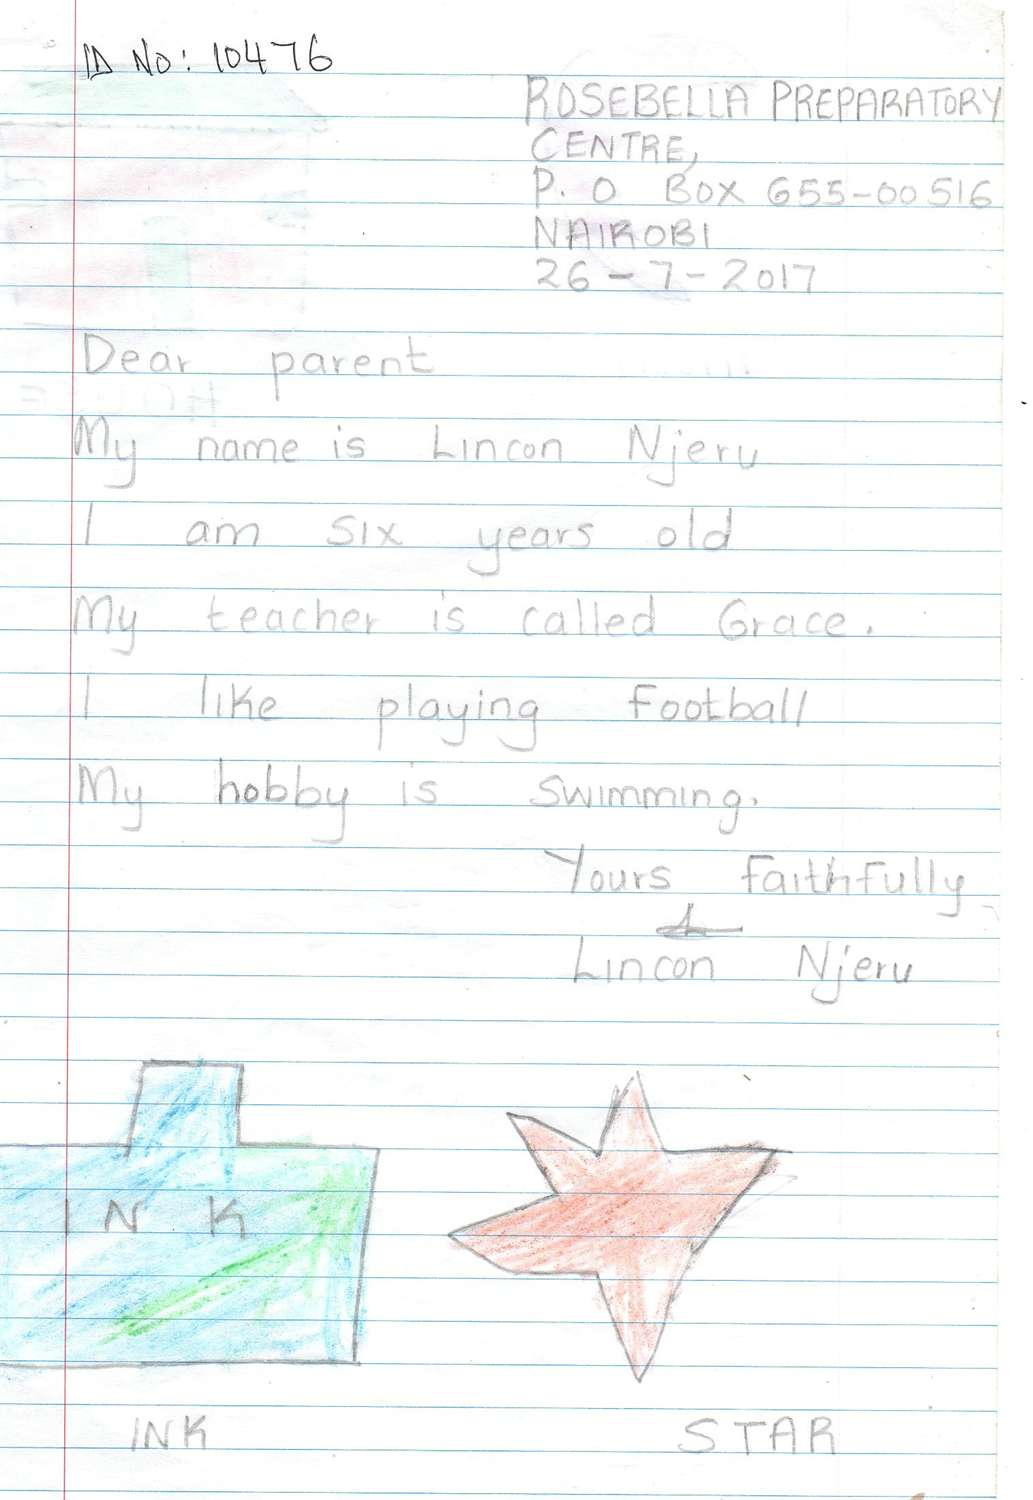 ID No: 10476
ROSEBELLA PREPARATORY
CENTRE,
P. O Box 655-00516
NAIROBI
26-7-2017
Dear parent
My name is Lincon Njeru
I am six years old
My teacher is called Grace.
I like playing Football
My hobby is swimming.
Yours Faithfully
Lincon Njeru
INK
INK STAR